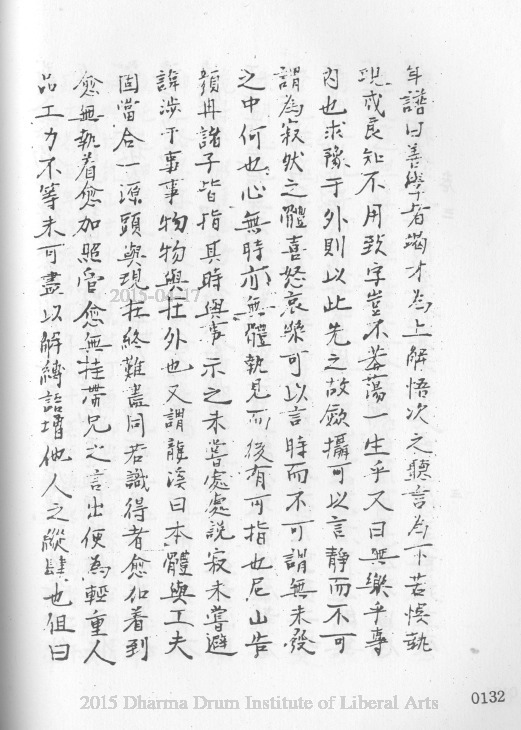 年譜曰善學者竭才為上解悟次之聽言為下若悞執
現成良知不用致字豈不莽蕩一生乎又曰無樂乎專
內也求豫于外則以此先之故歛攝可以言靜而不可
謂為寂然之體喜怒哀樂可以言時而不可謂無未發
之中何也心無時亦無體執見而後有可指也尼山告
顏冉諸子皆指其時與事示之未嘗處處說寂未嘗避
諱涉于事事物物與在外也又謂龍溪曰本體與工夫
固當合一源頭與現在終難盡同若識得者愈加着到
愈無執着愈加照管愈無挂帶兄之言出便為輕重人
品工力不等未可盡以解縛語增他人之縱肆也但曰
2015-04-17
2015 Dharma Drum Institute of Liberal Arts
0132